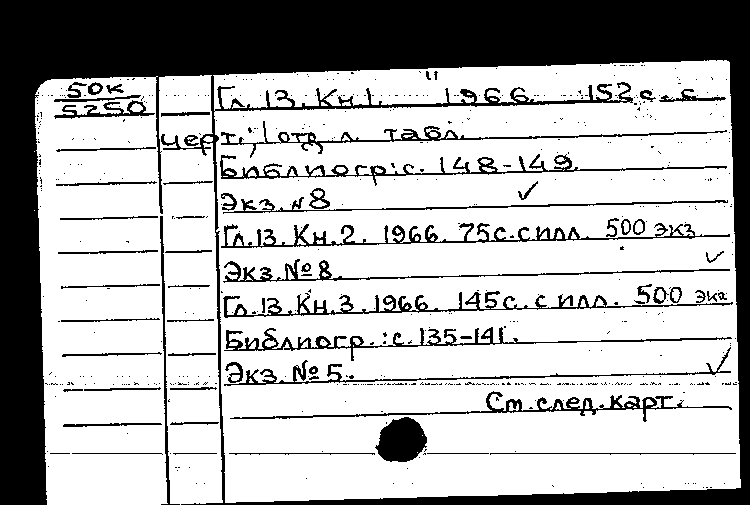 50к
5250
Гл. 13. Кн 1. " 1966. 152 с. с
черт., 1 отд л. табл.
Библиогр: с. 148-149.
Экз. № 8
Гл. 13. Кн. 2. 1966. 75с. с илл. 500 экз
Экз. № 8.
Гл. 13. Кн. 3. 1966. 145с. с илл. 500 экз
Библиогр.: с. 135-141.
Экз. № 5.
См. след. карт.